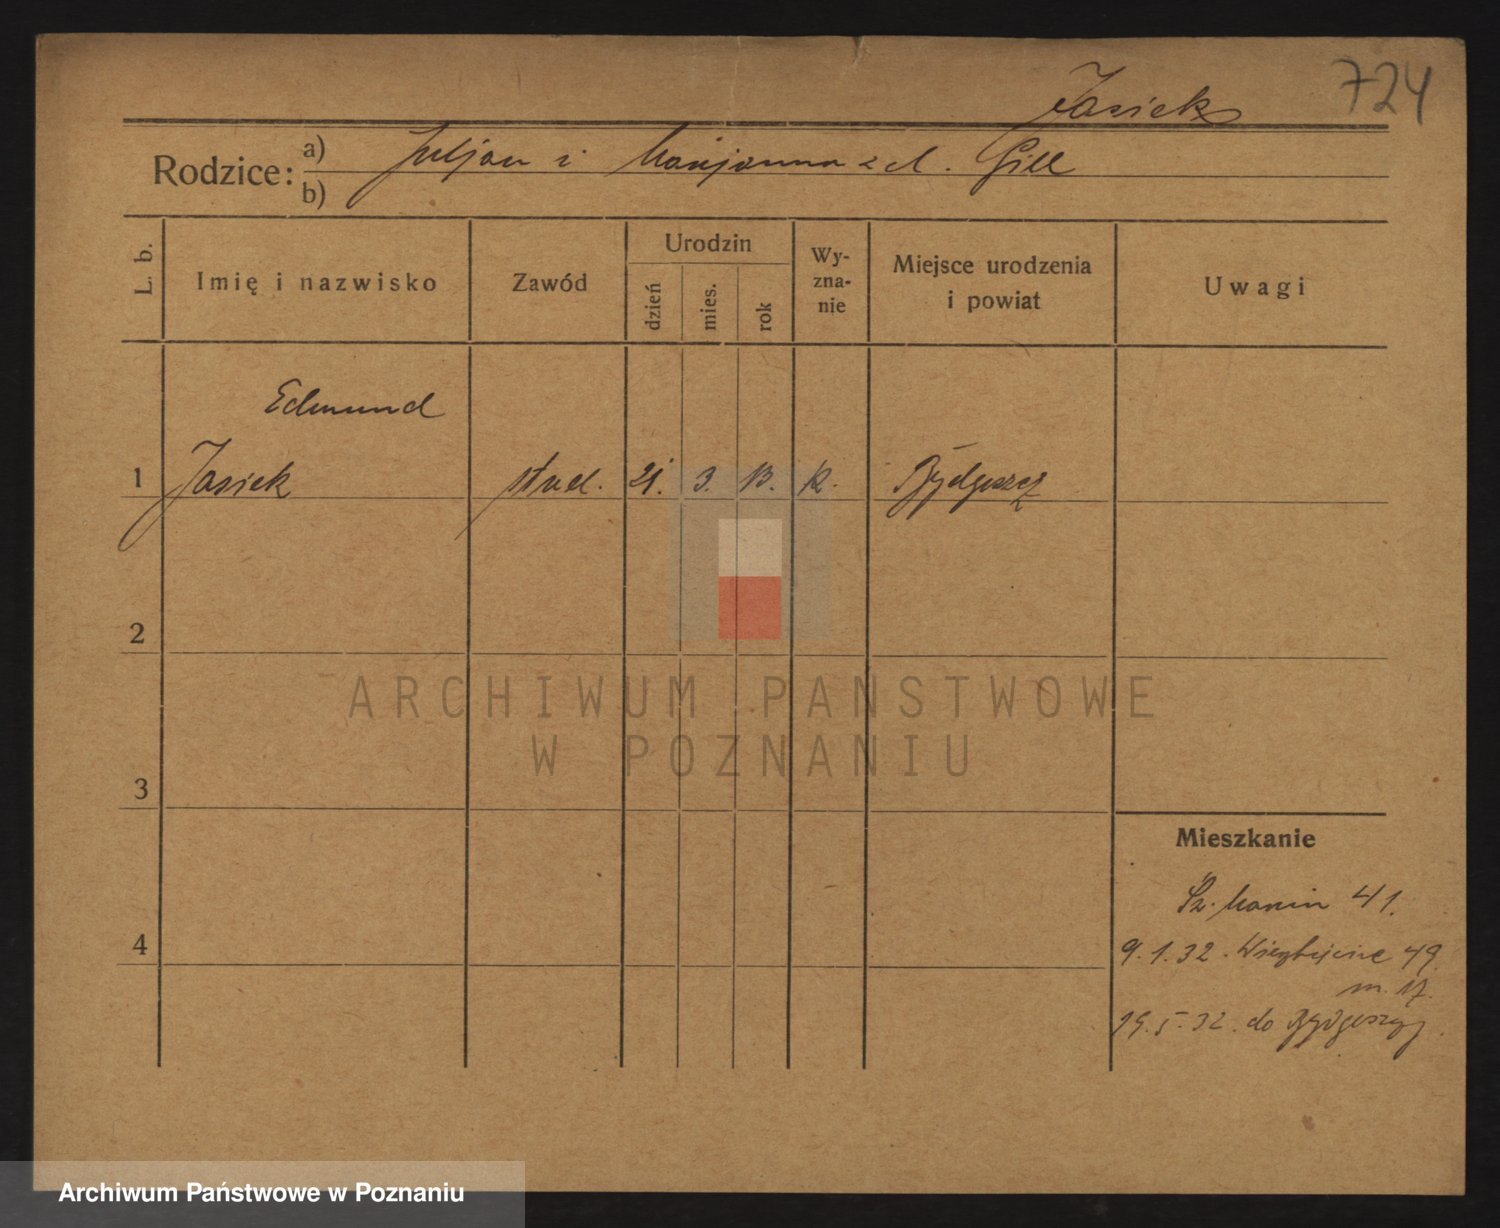 724
Jasiek
Rodzice: a) Juljan i Marjanna z d. Gill
b)
L. b. Imię i nazwisko Zawód Urodzin dzień mies. rok Wyznanie Miejsce urodzenia i powiat Uwagi
Edmund
1 Jasiek stud. 21. 3. 13. k. Bydgoszcz
2
3
4
Mieszkanie
Św. Marcin 41.
9.1.32. Wierzbięcice 49
m. 17.
19.5.32. do Bydgoszczy
ARCHIWUM PAŃSTWOWE
W POZNANIU
Archiwum Państwowe w Poznaniu